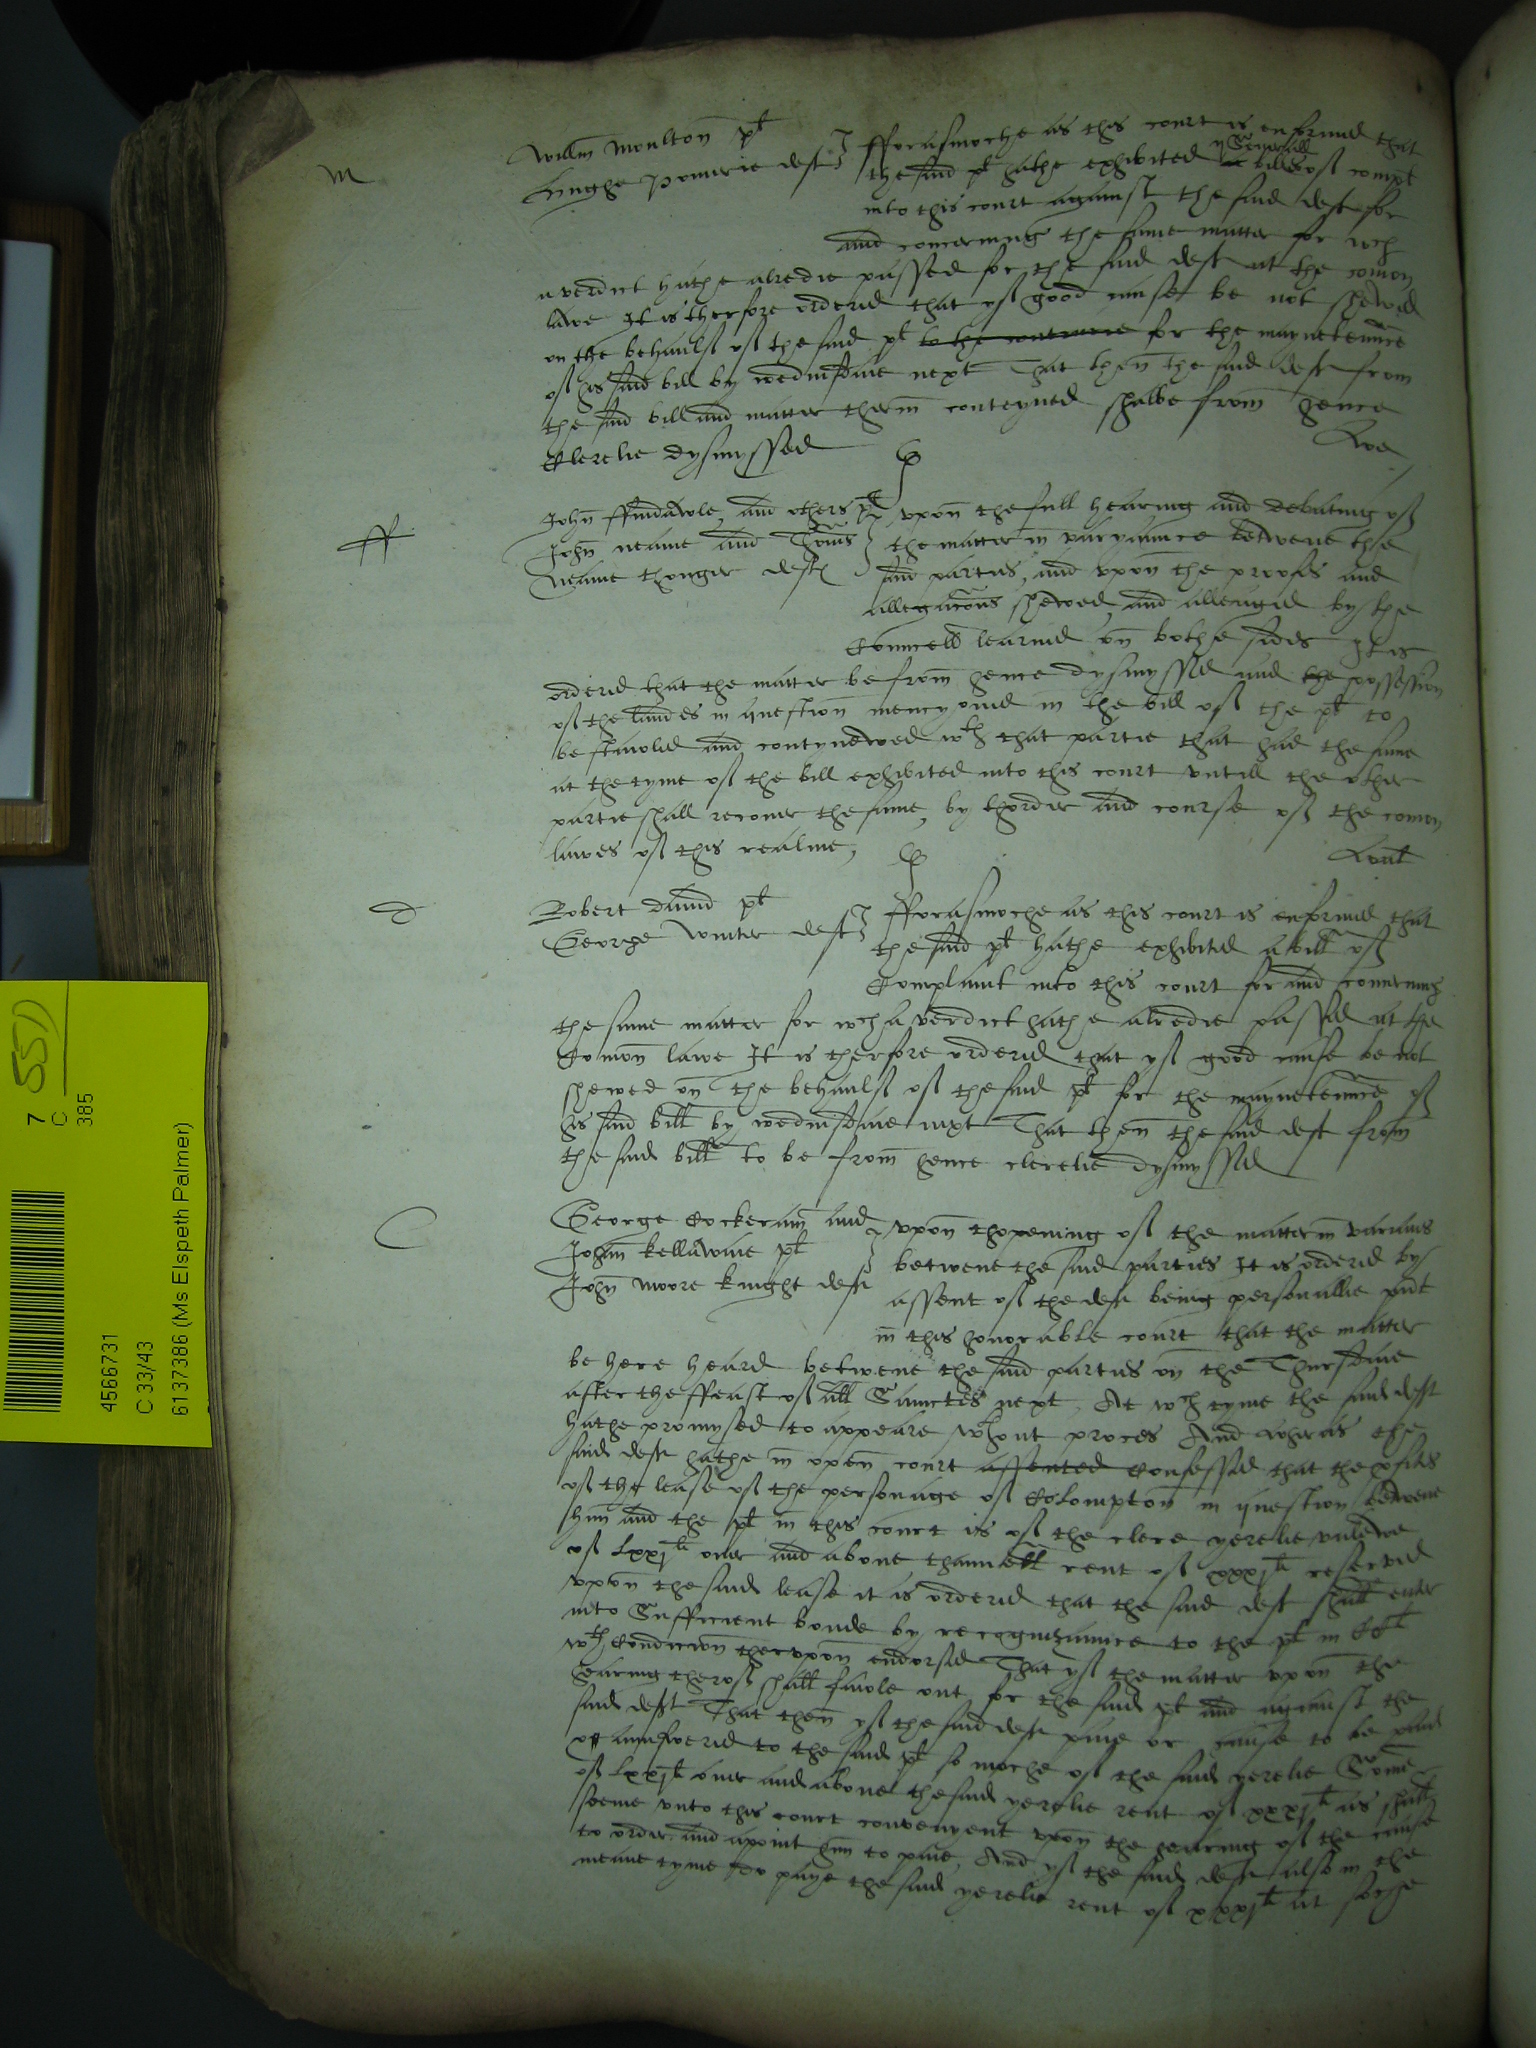 M
Willm Moulton pl
Hughe Pomerie deft
fforasmoche as this court is enformed that
the said pl hathe exhibited ij severall billes of compl
into this court against the said deft for
and concerning the same matter for wch
a verdict hathe alredie passed for the said deft at the comon
lawe It is therfore ordered that yf good cause be not shewed
on the behaulf of the said pl to the contrarie for the mayntenⁿce
of his said bill by wednisdaie next That then the said deft from
the said bill and matter therin conteyned shalbe from hence
Clerelie dysmyssed
ff
John ffindawle and others pl
John neame and Thomas
Neame thonger deft
upon the full hearing and debating of
the matter in varyaunce betwene the
said parties, and upon the proofes and
allegacons shewed and alleaged by the
Councell learned on bothe sides It is
ordered that the matter be from hence dysmyssed and the possession
of the landes in question mencyoned in the bill of the pl to
be stawled and contynewed wth that partie that had the same
at the tyme of the bill exhibited into this court untill the other
partie shall recover the same, by thorder and course of the comon
lawes of this realme,
d
Robert david pl
George winter deft
fforasmoche as this court is enformed that
the said pl hathe exhibited a bill of
Complaint into this court for and concerning
the same matter for wch a verdict hathe alredie passed at the
Comon lawe It is therfore ordered that yf good cause be not
shewed on the behaulf of the said pl for the mayntenⁿce of
his said bill by wednisdaie next That then the said deft from
the said bill to be from hence clerelie dysmyssed
C
George Cockeram and
Johan kellawaie pl
John Moore knight deft
upon thopening of the matter in varians
betwene the said parties It is ordered by
assent of the deft being personallie pnt
in this honorable court that the matter
be here heard betwene the said parties on the Thursdaie
after the ffeast of all Sainctes next. At wch tyme the said deft
hathe promysed to appeare wthout proces And wheras the
said deft hathe in open court assented Confessed that the pfites
of the lease of the personage of Colompton in question betwene
him and the pl in this court is of the clere yerelie valewe
of Lxxjli over and above thannuell rent of xxxjli reserved
upon the said lease it is ordered that the said deft shall enter
into Sufficient bonde by recognizaunce to the pl in CCli
wth Condicion therupon endorsed That yf the matter upon the
hearing therof shall fawle out for the said pl and against the
said deft That then yf the said deft paie or cause to be paid
or aunswered to the said pl so moche of the said yerelie Some
of Lxxjli over and above the said yerelie rent of xxxjli as shall
seeme unto this court convenyent upon the hearing of the cause
to order and apoint him to paie, And yf the said deft also in the
meane tyme do paye the said yerelie rent of xxxjli at soche
7
C 551
385
4566731
C 33/43
6137386 (Ms Elspeth Palmer)